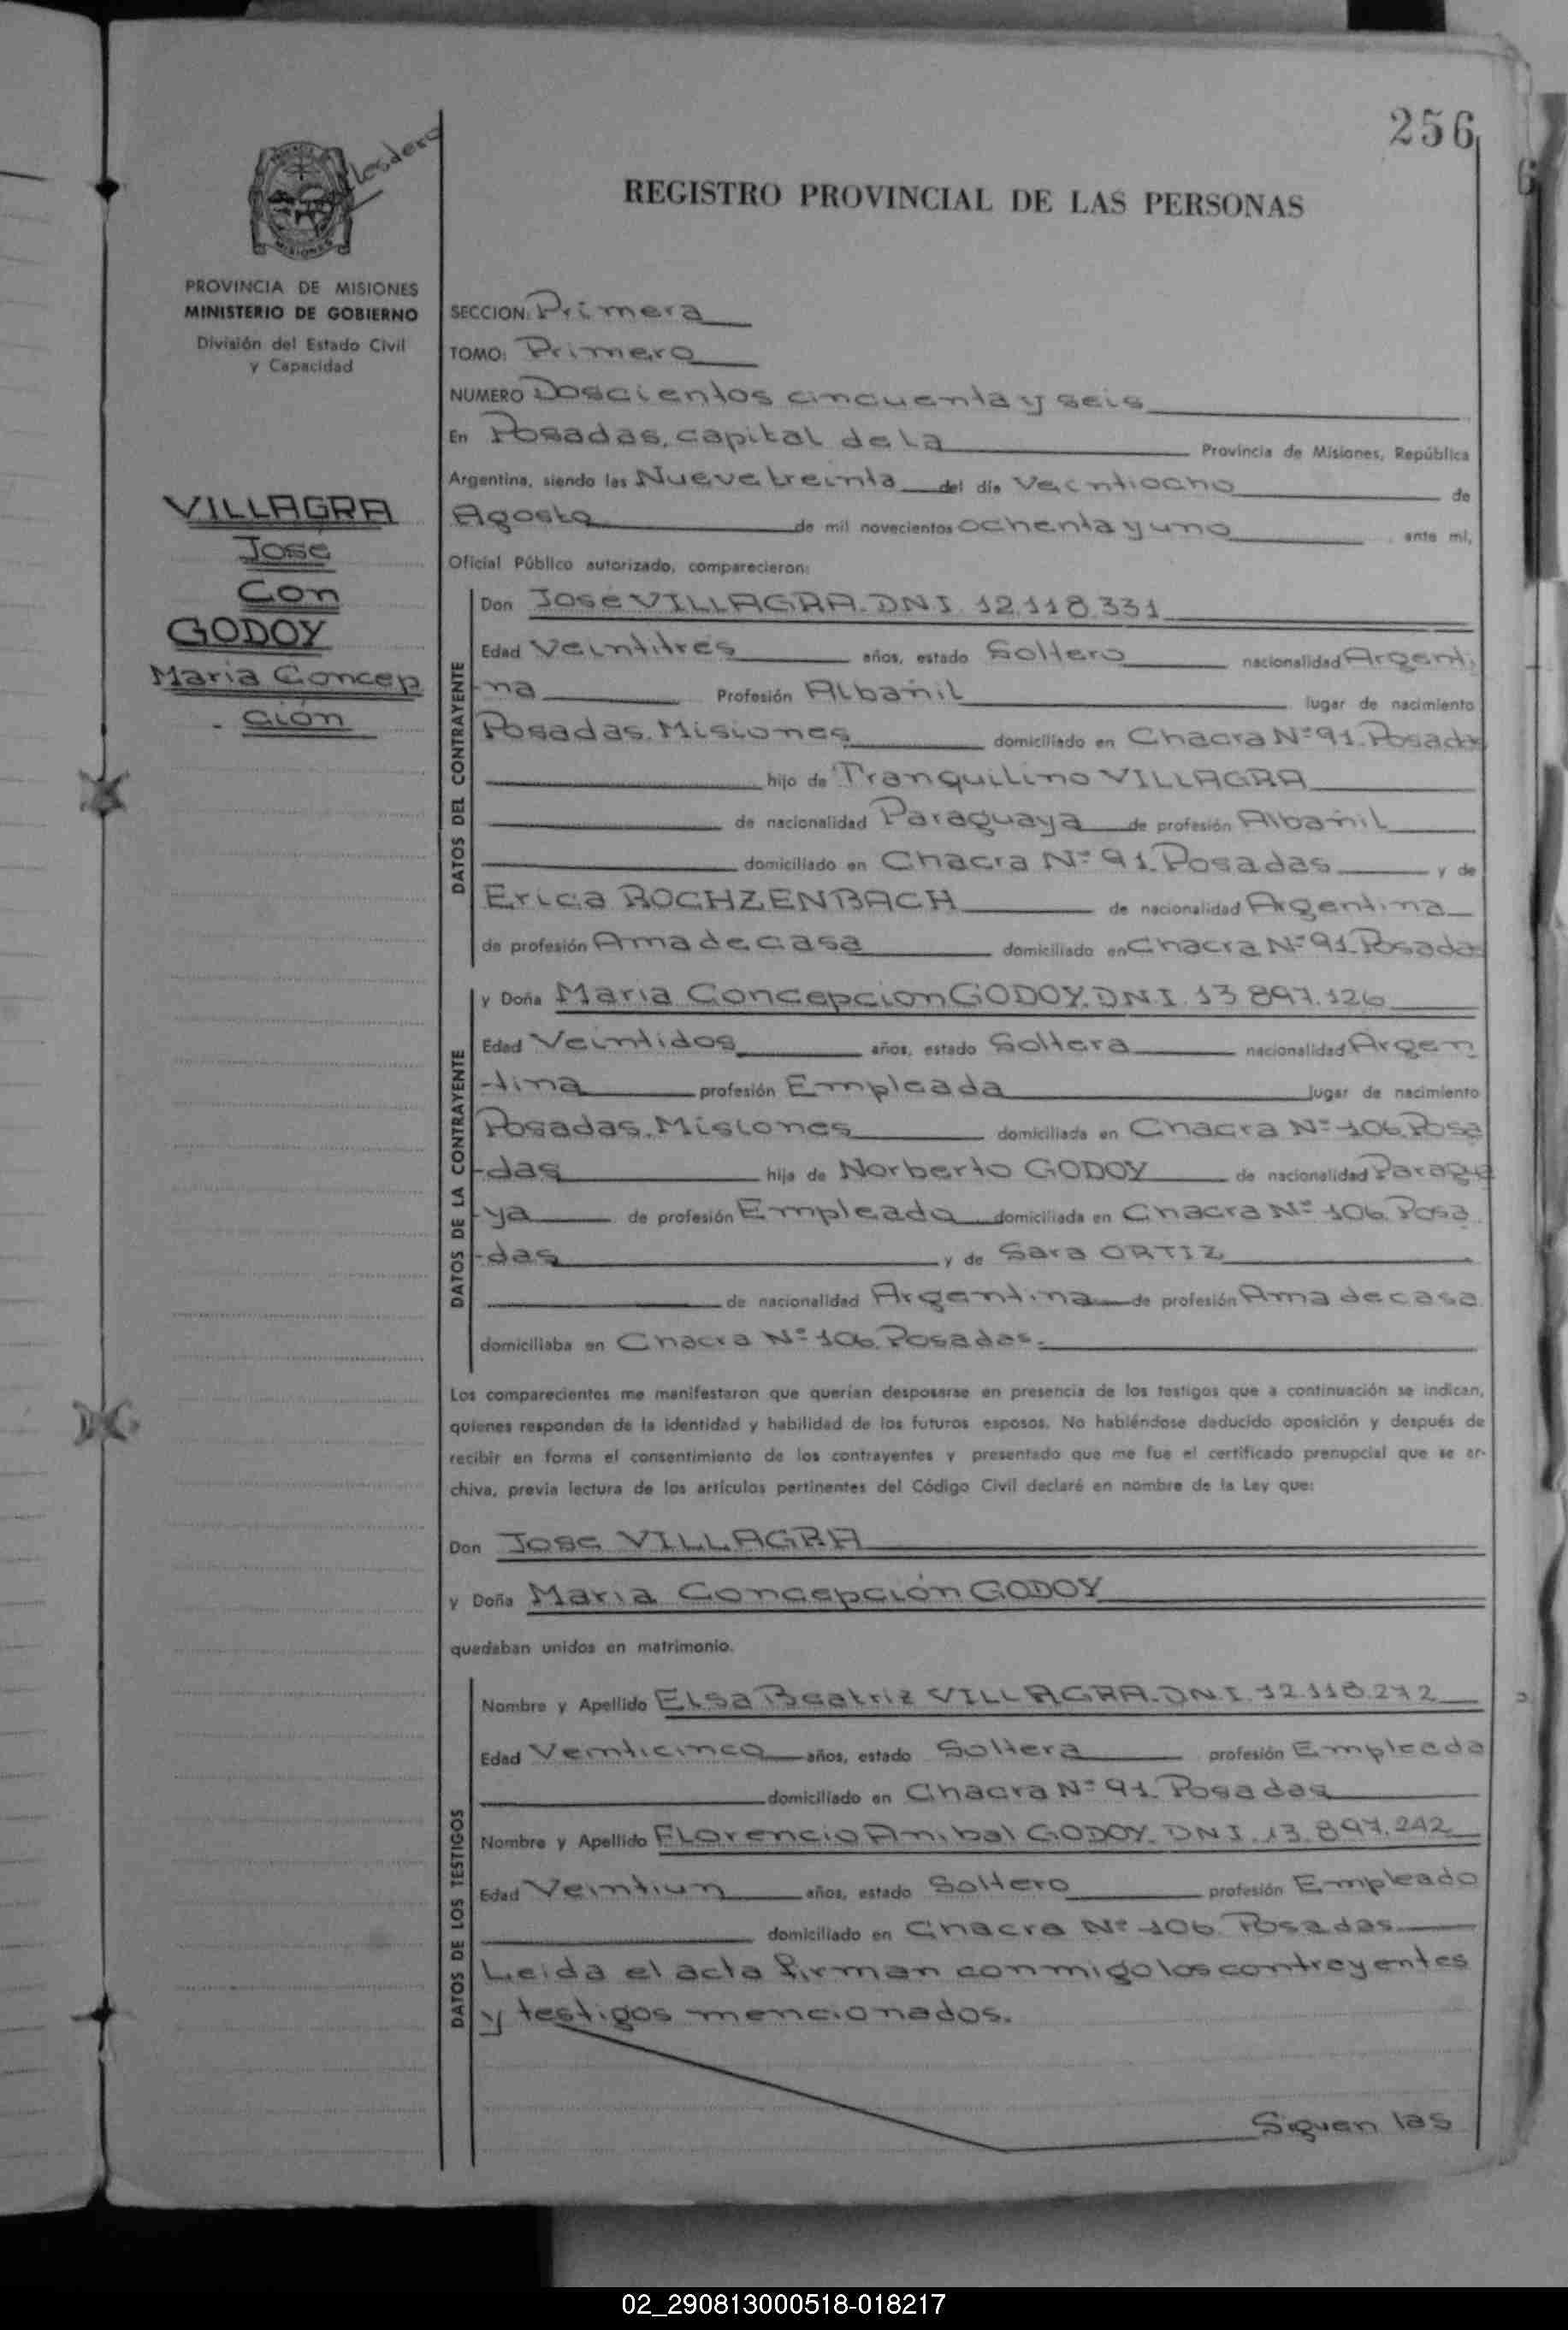 256
REGISTRO PROVINCIAL DE LAS PERSONAS
PROVINCIA DE MISIONES
MINISTERIO DE GOBIERNO
División del Estado Civil
y Capacidad
VILLAGRA
José
Con
GODOY
Maria Concep
- ción
SECCION: Primera
TOMO: Primero
NUMERO Doscientos cincuenta y seis
En Posadas, capital de la Provincia de Misiones, República
Argentina, siendo las Nueve treinta del día Veintiocho de
Agosto de mil novecientos ochenta y uno ante mí,
Oficial Público autorizado, comparecieron:
DATOS DEL CONTRAYENTE
Don José VILLAGRA. DNI. 12.118.331
Edad Veintitres años, estado Soltero nacionalidad Argenti
-na Profesión Albañil lugar de nacimiento
Posadas. Misiones domiciliado en Chacra Nº 91. Posadas
hijo de Tranquilino VILLAGRA
de nacionalidad Paraguaya de profesión Albañil
domiciliado en Chacra Nº 91. Posadas y de
Erica ROCHZENBACH de nacionalidad Argentina
de profesión Ama de casa domiciliado en Chacra Nº 91. Posadas
DATOS DE LA CONTRAYENTE
y Doña Maria Concepcion GODOY. DNI. 13.897.126
Edad Veintidos años, estado Soltera nacionalidad Argen
-tina profesión Empleada lugar de nacimiento
Posadas. Misiones domiciliada en Chacra Nº 106. Posa
-das hija de Norberto GODOY de nacionalidad Paragua
-ya de profesión Empleado domiciliada en Chacra Nº 106. Posa
-das y de Sara ORTIZ
de nacionalidad Argentina de profesión Ama de casa
domiciliaba en Chacra Nº 106. Posadas.
Los comparecientes me manifestaron que querían desposarse en presencia de los testigos que a continuación se indican,
quienes responden de la identidad y habilidad de los futuros esposos. No habiéndose deducido oposición y después de
recibir en forma el consentimiento de los contrayentes y presentado que me fue el certificado prenupcial que se ar-
chiva, previa lectura de los artículos pertinentes del Código Civil declaré en nombre de la Ley que:
Don José VILLAGRA
y Doña Maria Concepción GODOY
quedaban unidos en matrimonio.
DATOS DE LOS TESTIGOS
Nombre y Apellido Elsa Beatriz VILLAGRA. DNI. 12.118.272
Edad Veinticinco años, estado Soltera profesión Empleada
domiciliado en Chacra Nº 91. Posadas
Nombre y Apellido Florencio Anibal GODOY. DNI. 13.897.242
Edad Veintiun años, estado Soltero profesión Empleado
domiciliado en Chacra Nº 106. Posadas
Leida el acta firman conmigo los contrayentes
y testigos mencionados.
Siguen las
02_290813000518-018217